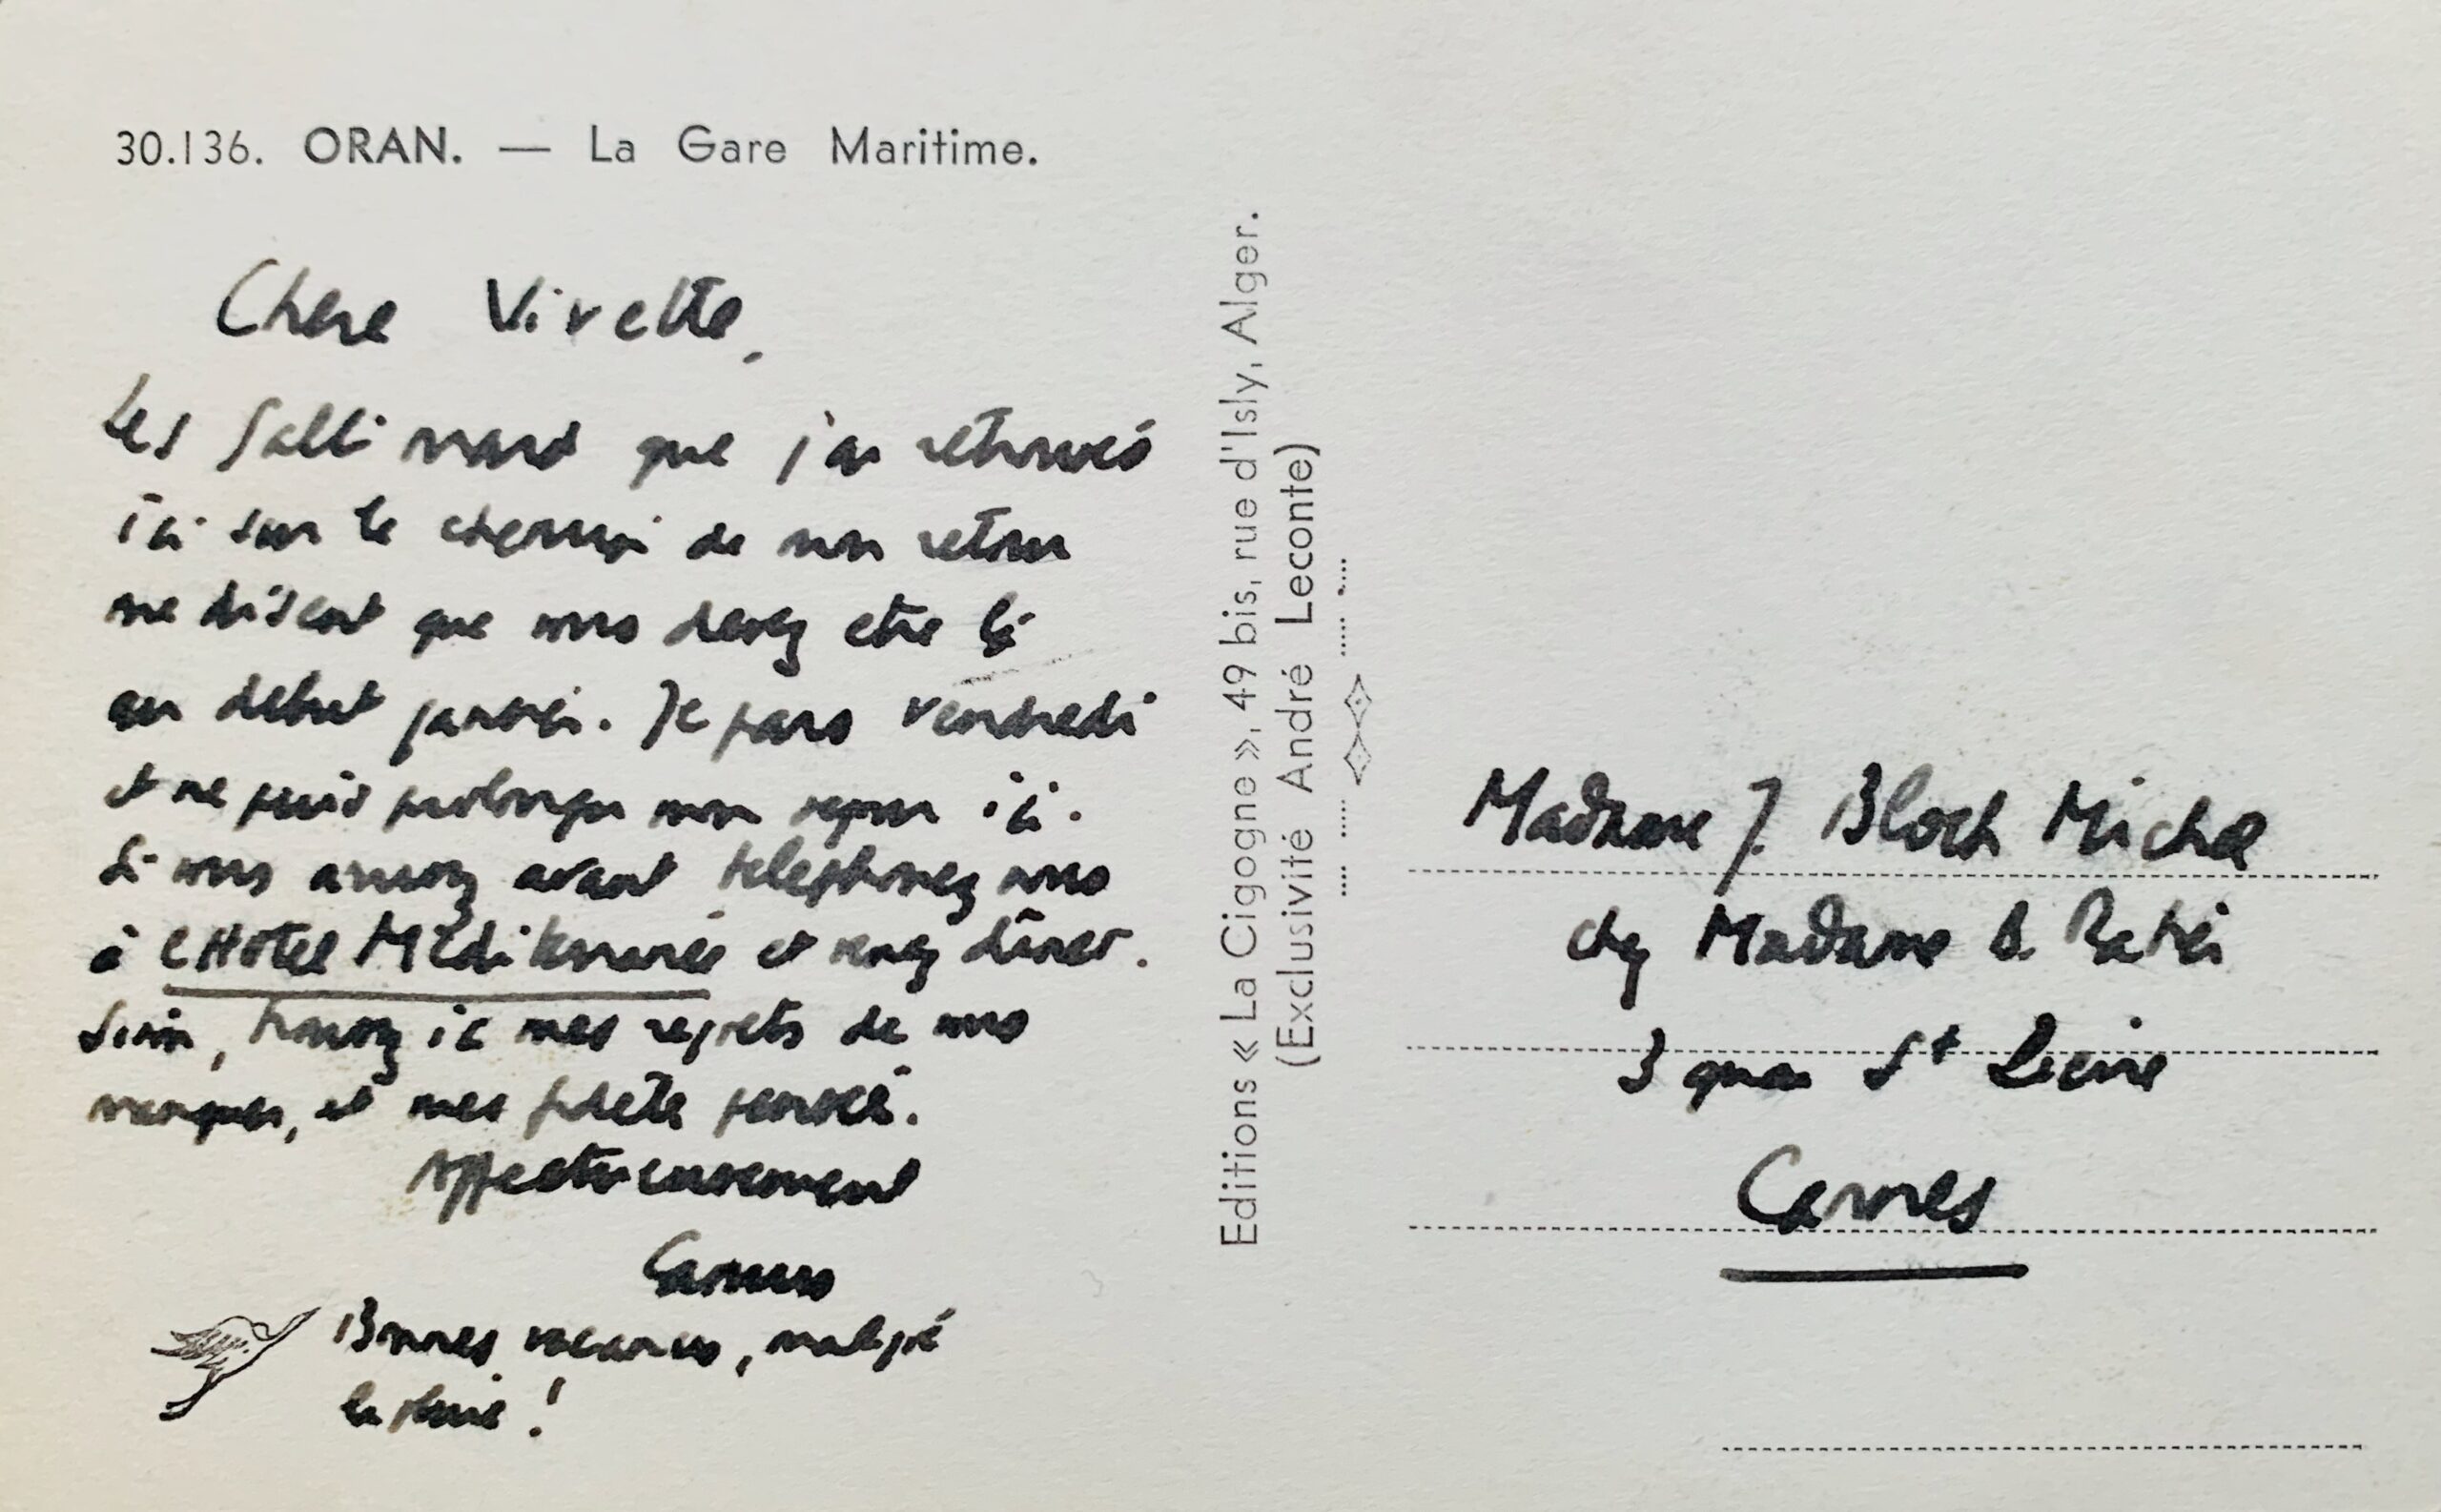 30.136. ORAN. — La Gare Maritime.
Chère Vivette,
Les Gallimard que j'ai retrouvés
ici sur le chemin de mon retour
me disent que vous devez être là
au début janvier. Je pars vendredi
et ne puis prolonger mon séjour ici.
Si vous arrivez avant téléphonez nous
à l'Hôtel Méditerranée et venez dîner.
Sinon, trouvez ici mes regrets de vous
manquer, et mes fidèles pensées.
Affectueusement
Camus
Bonnes vacances, malgré
la pluie !
Editions « La Cigogne », 49 bis, rue d'Isly, Alger.
(Exclusivité André Leconte)
Madame J. Bloch Michel
chez Madame
3 quai St Pierre
Cannes